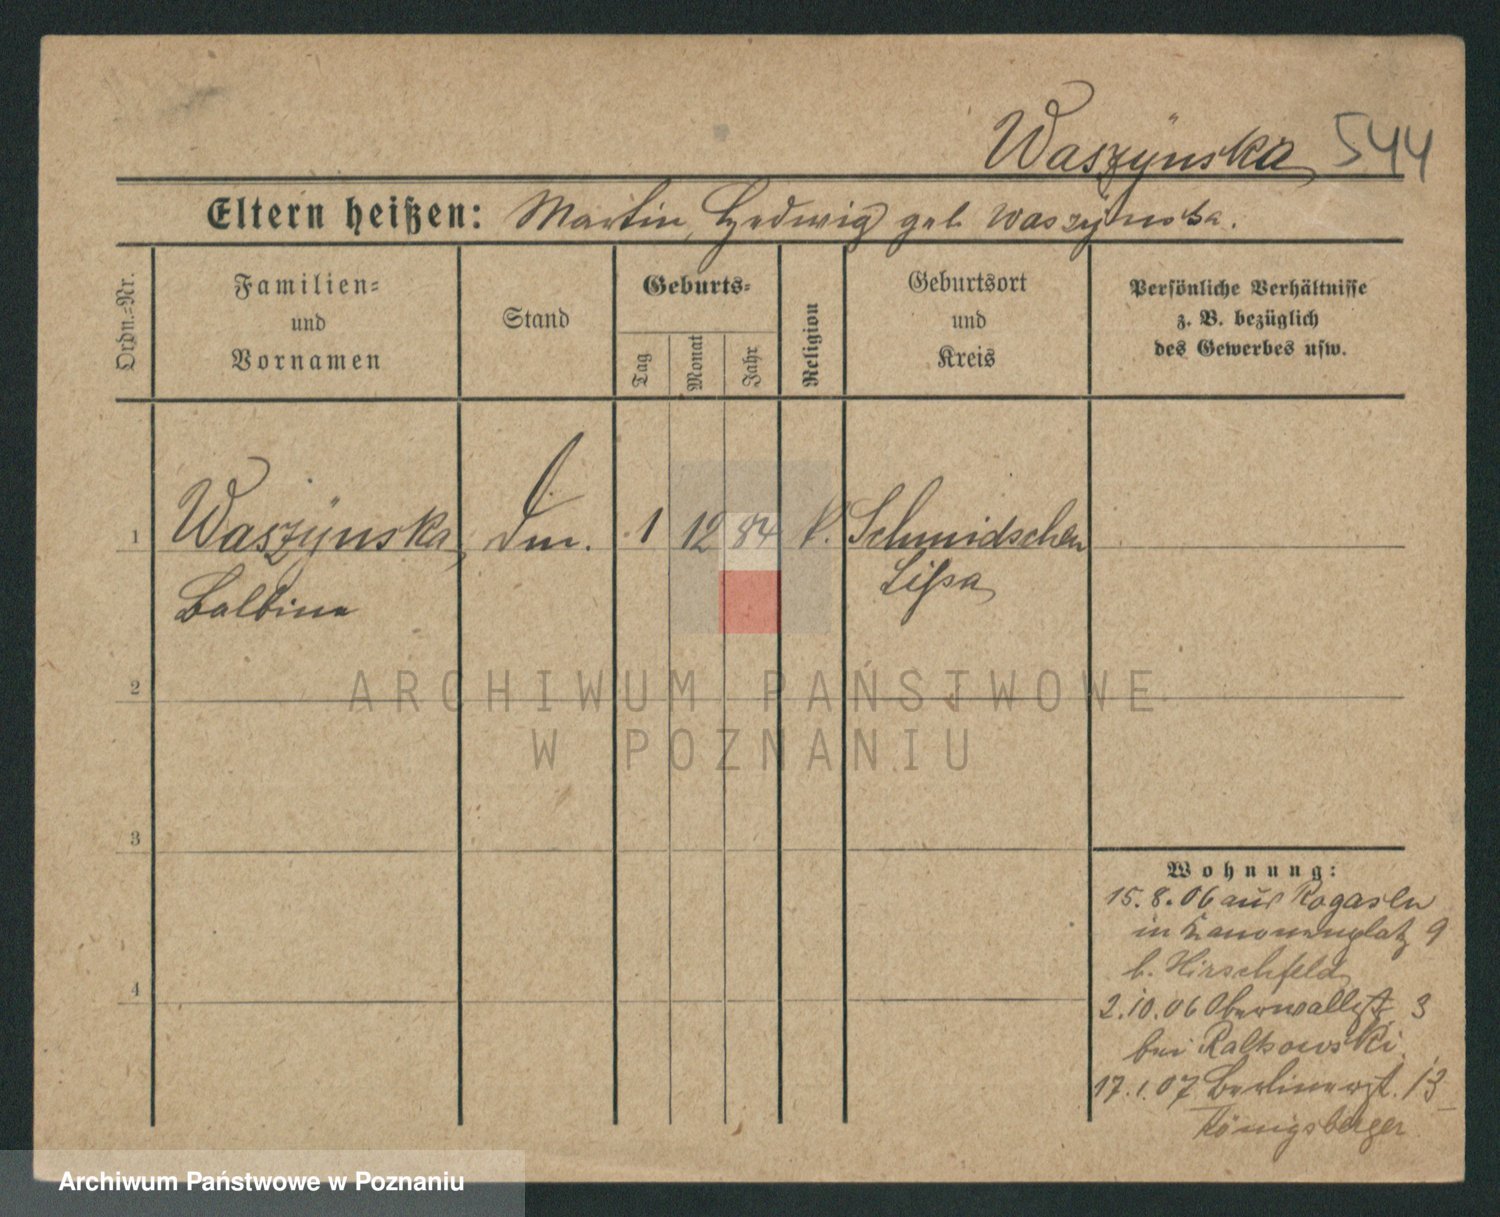 Waszÿnska, 544
Eltern heißen: Martin, Hedwig geb. Waszÿnska.
Ordn.=Nr.
Familien=
und
Vornamen
Stand
Geburts=
Tag
Monat
Jahr
Religion
Geburtsort
und
Kreis
Persönliche Verhältnisse
z. B. bezüglich
des Gewerbes usw.
1 Waszÿnska, 1 12 84 k. Schmidschen
Balbina Lissa
2
ARCHIWUM PAŃSTWOWE
W POZNANIU
3
4
Wohnung:
15.8.06 aus Rogasen
in Kanonenplatz 9
b. Hirschfeld
2.10.06 Oberwallst. 3
bei Ratkowski
17.1.07 Berlinerst. 13
Königsberger
Archiwum Państwowe w Poznaniu